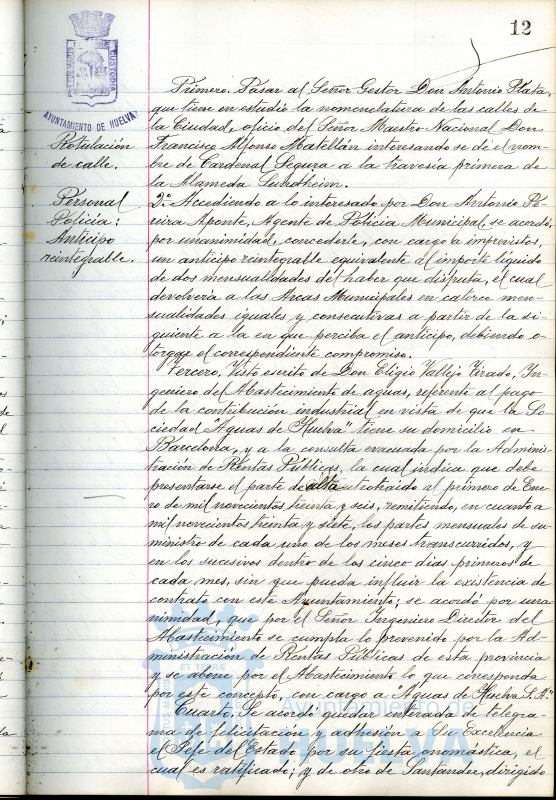 12
CUSTODIA
AYUNTAMIENTO DE HUELVA
Rotulación
de calle.
Personal
Policía:
Anticipo
reintegrable.
Primero. Pasar al Señor Gestor Don Antonio Plata,
que tiene en estudio la nomenclatura de las calles de
la Ciudad, oficio del Señor Maestro Nacional Don
Francisco Alfonso Matellán interesando se dé el nom-
bre de Cardenal Segura a la travesía primera de
la Alameda Sundheim.
2º Accediendo a lo interesado por Don Antonio Pe-
reira Aponte, Agente de Policía Municipal, se acordó,
por unanimidad, concederle, con cargo a imprevistos,
un anticipo reintegrable equivalente al importe líquido
de dos mensualidades del haber que disfruta, el cual
devolvería a las Arcas Municipales en catorce men-
sualidades iguales y consecutivas a partir de la si-
guiente a la en que perciba el anticipo, debiendo o-
torgar el correspondiente compromiso.
Tercero. Visto escrito de Don Eligio Vallejo Tirado, In-
geniero del Abastecimiento de aguas, referente al pago
de la contribución industrial en vista de que la So-
ciedad "Aguas de Huelva" tiene su domicilio en
Barcelona, y a la consulta evacuada por la Adminis-
tración de Rentas Públicas, la cual indica que debe
presentarse el parte de alta retrotraído al primero de Ene-
ro de mil novecientos treinta y seis, remitiendo, en cuanto a
mil novecientos treinta y siete, los partes mensuales de su-
ministro de cada uno de los meses transcurridos, y
en los sucesivos dentro de los cinco días primeros de
cada mes, sin que pueda influir la existencia de
contrato con este Ayuntamiento; se acordó por una-
nimidad, que por el Señor Ingeniero Director del
Abastecimiento se cumpla lo prevenido por la Ad-
ministración de Rentas Públicas de esta provincia
y se abone por el Abastecimiento lo que corresponda
por este concepto, con cargo a "Aguas de Huelva S.A."
Cuarto. Se acordó quedar enterada de telegra-
ma de felicitación y adhesión a Su Excelencia
el Jefe del Estado por su fiesta onomástica, el
cual es ratificado; y de otro de Santander, dirigido
ET TERRAE
Ayuntamiento de
HUELVA